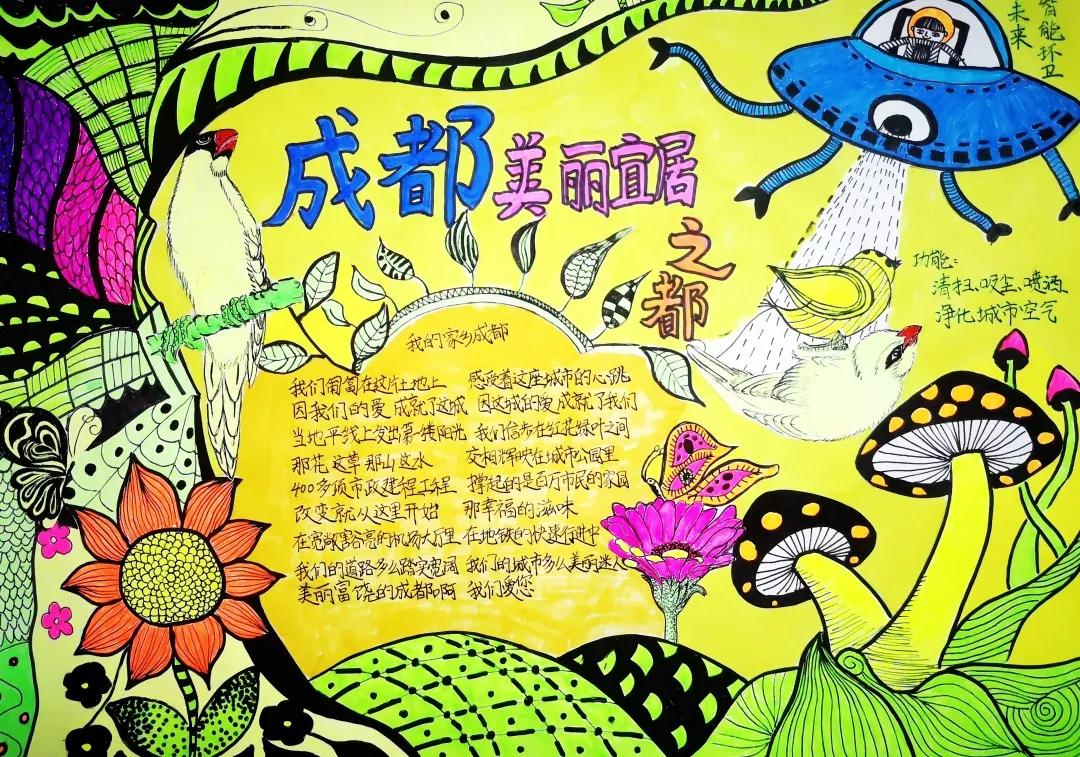 成都美丽宜居
之
都
智能环卫
未来
功能:
清扫、吸尘、喷洒
净化城市空气
我的家乡成都
我们匍匐在这片土地上 感受着这座城市的心跳
因我们的爱 成就了这城 因这城的爱 成就了我们
当地平线上发出第一缕阳光 我们信步在红花绿叶之间
那花 这草 那山 这水 交相辉映在城市公园里
400多项市政建程工程 撑起的是百万市民的家园
改变就从这里开始 那幸福的滋味
在宽敞 亮的机场大厅里 在地铁的快速行进中
我们的道路多么踏实宽阔 我们的城市多么美丽迷人
美丽富饶的成都啊 我们爱您